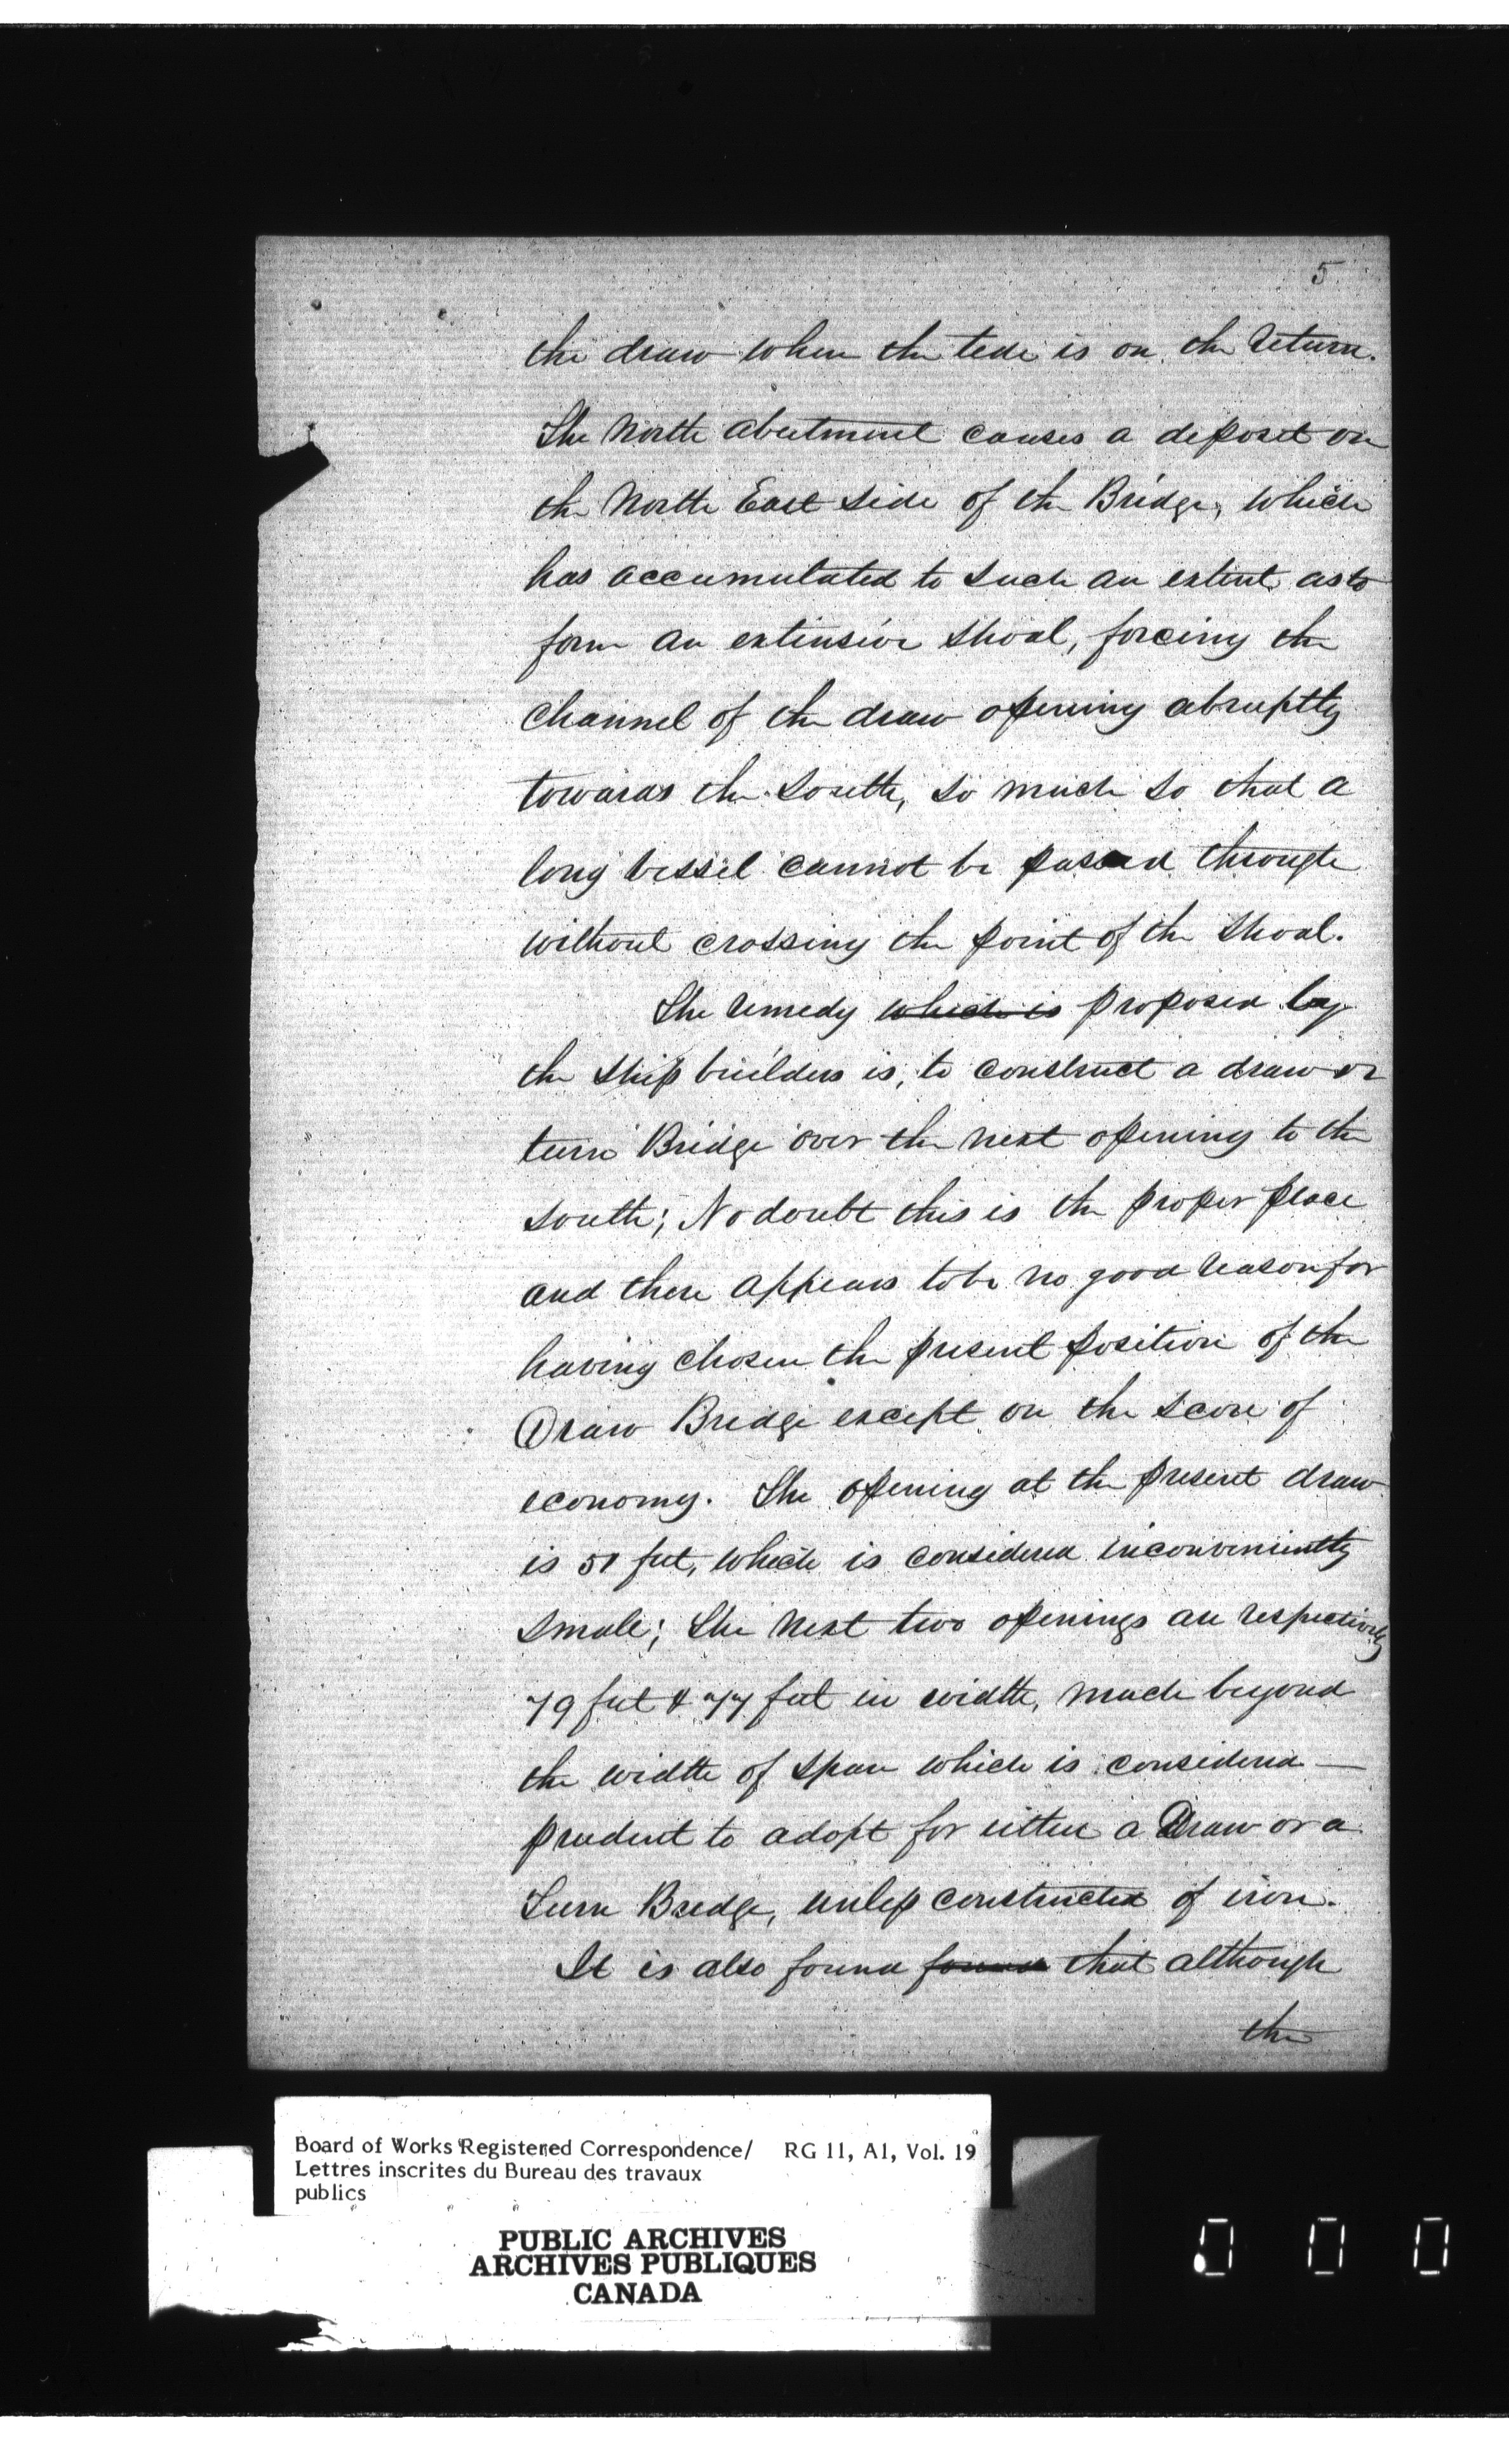 5
the draw when the tide is on the return.
The North abutment causes a deposit on
the North East side of the Bridge, which
has accumulated to such an extent as to
form an extensive shoal, forcing the
channel of the draw opening abruptly
towards the South, so much so that a
long vessel cannot be passed through
without crossing the point of the shoal.
The remedy which is proposed by
the Ship builders is, to construct a draw or
turn Bridge over the next opening to the
South; No doubt this is the proper place
and there appears to be no good reason for
having chosen the present position of the
Draw Bridge except on the score of
economy. The opening at the present draw
is 51 feet, which is considered inconveniently
small; the next two openings are respectively
79 feet & 77 feet in width, much beyond
the width of span which is considered —
prudent to adopt for either a Draw or a
Turn Bridge, unless constructed of iron.
It is also found found that although
the
Board of Works Registered Correspondence/ RG 11, A1, Vol. 19
Lettres inscrites du Bureau des travaux
publics
PUBLIC ARCHIVES
ARCHIVES PUBLIQUES
CANADA
.0 0 0